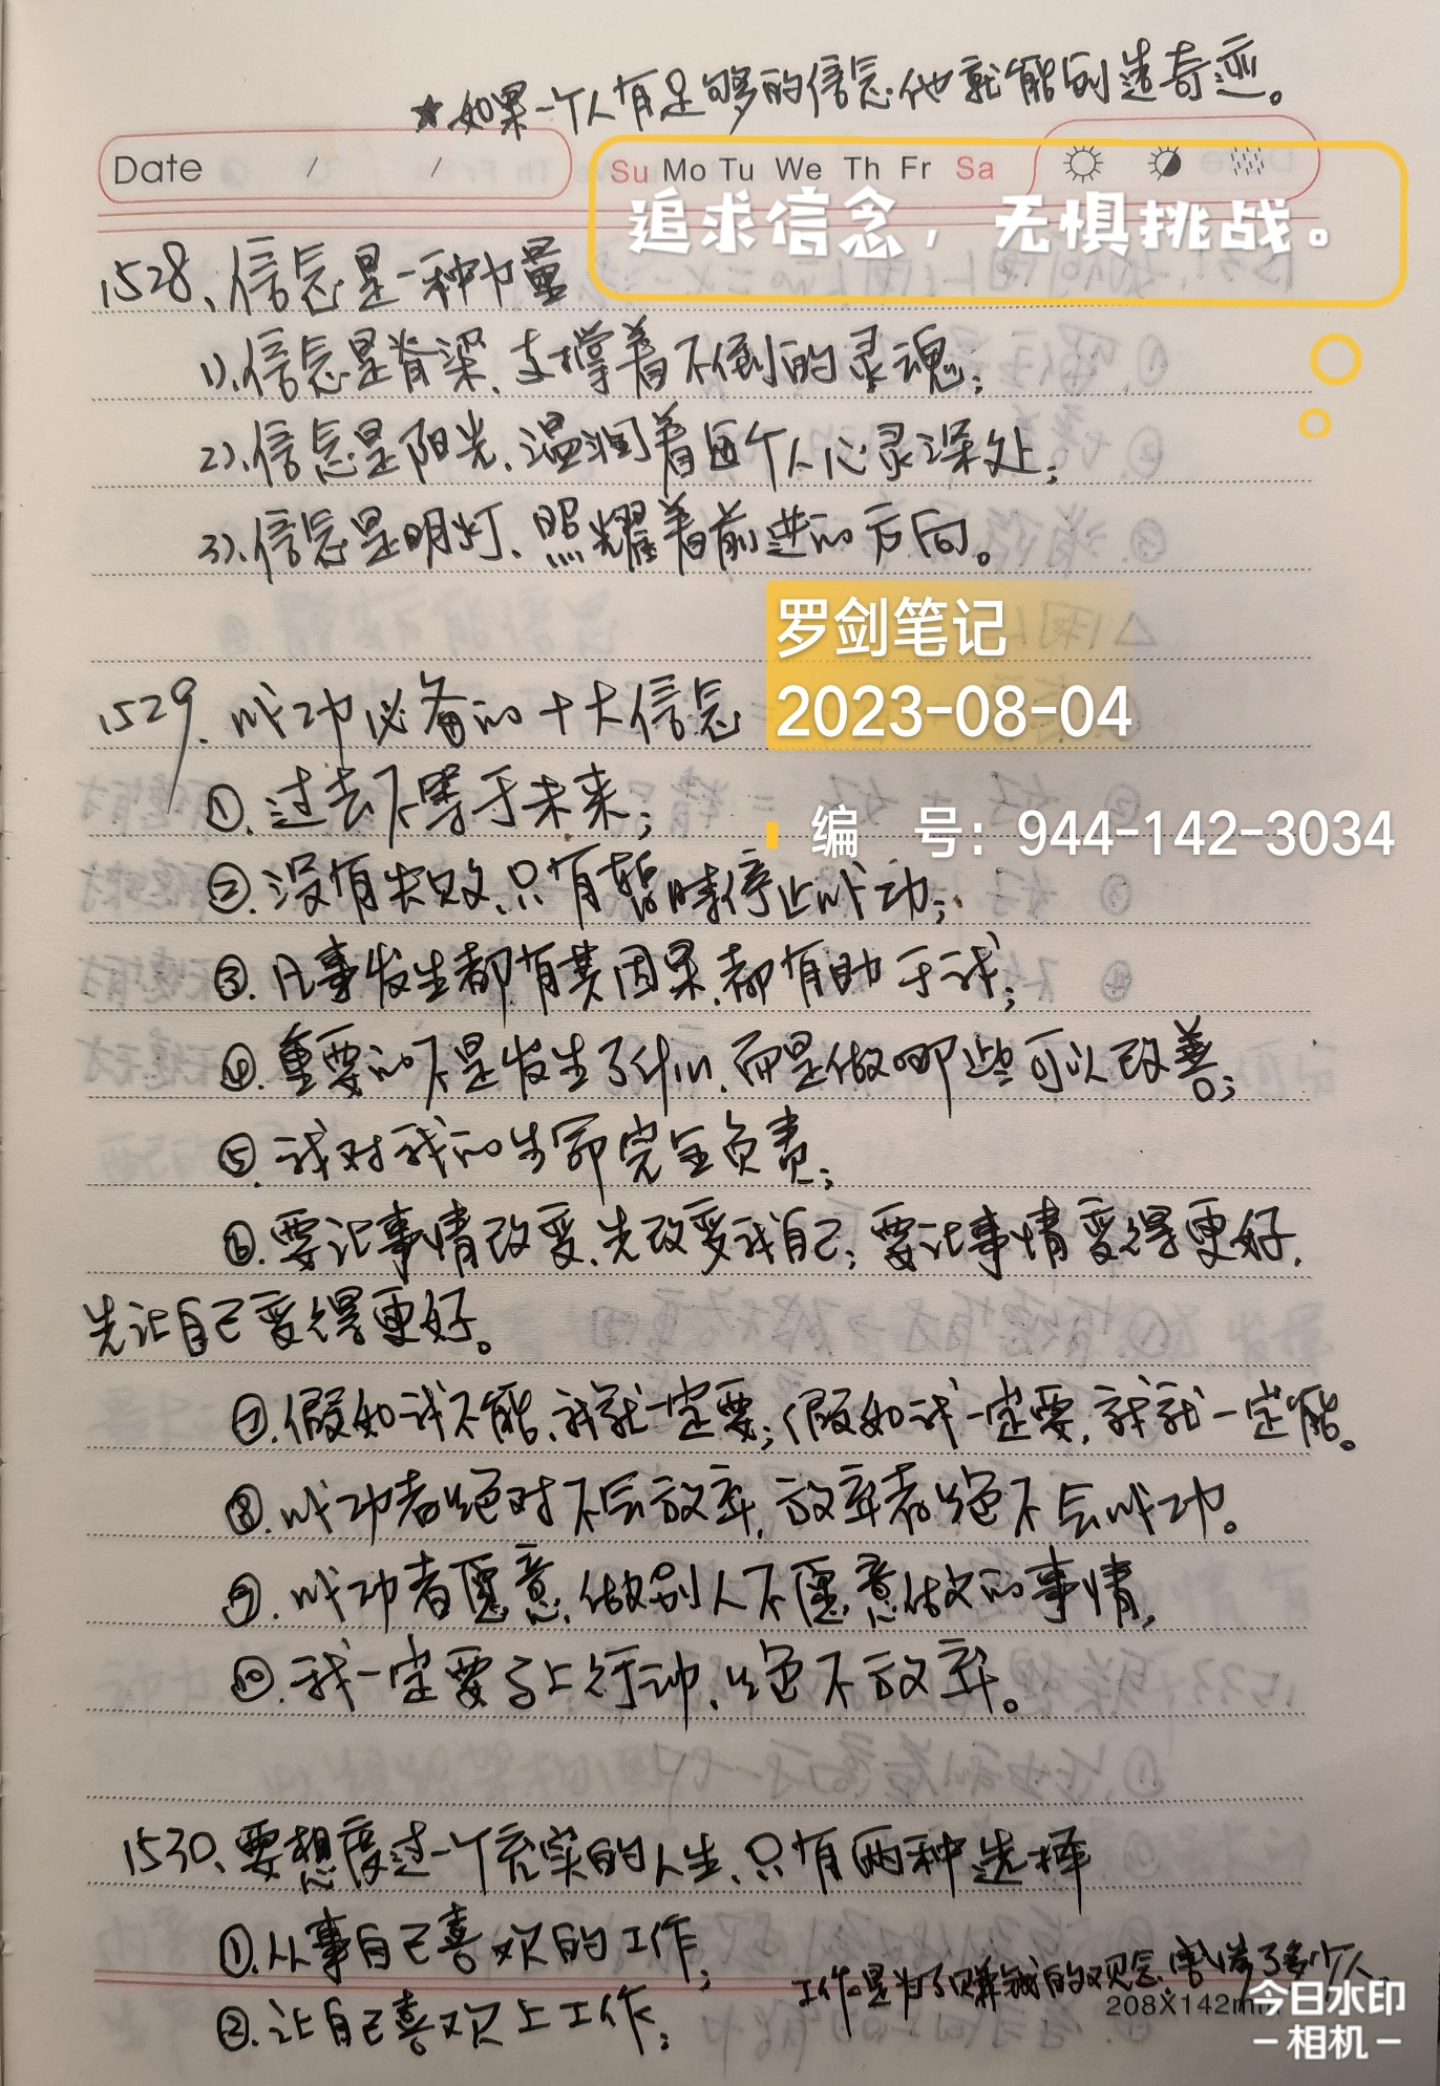 ★如果一个人有足够的信念他就能创造奇迹。
Date / / Su Mo Tu We Th Fr Sa
追求信念，无惧挑战。
1528、信念是一种力量
1)、信念是脊梁、支撑着不倒的灵魂；
2)、信念是阳光、温润着每个人心灵深处；
3)、信念是明灯、照耀着前进的方向。
罗剑笔记
2023-08-04
1529、成功必备的十大信念
①、过去不等于未来；
编 号：944-142-3034
②、没有失败、只有暂时停止成功；
③、凡事发生都有其因果、都有助于我；
④、重要的不是发生了什么、而是做哪些可以改善；
⑤、我对我的生命完全负责；
⑥、要让事情改变、先改变我自己；要让事情变得更好，
先让自己变得更好。
⑦、假如我不能、我就一定要；假如我一定要，我就一定能。
⑧、成功者绝对不会放弃，放弃者绝不会成功。
⑨、成功者愿意、做别人不愿意做的事情，
⑩、我一定要马上行动、绝不放弃。
1530、要想度过一个充实的人生、只有两种选择
①、从事自己喜欢的工作；
工作是为了赚钱的观念、害惨了多少人。
208X142mm
②、让自己喜欢上工作；
今日水印
相机